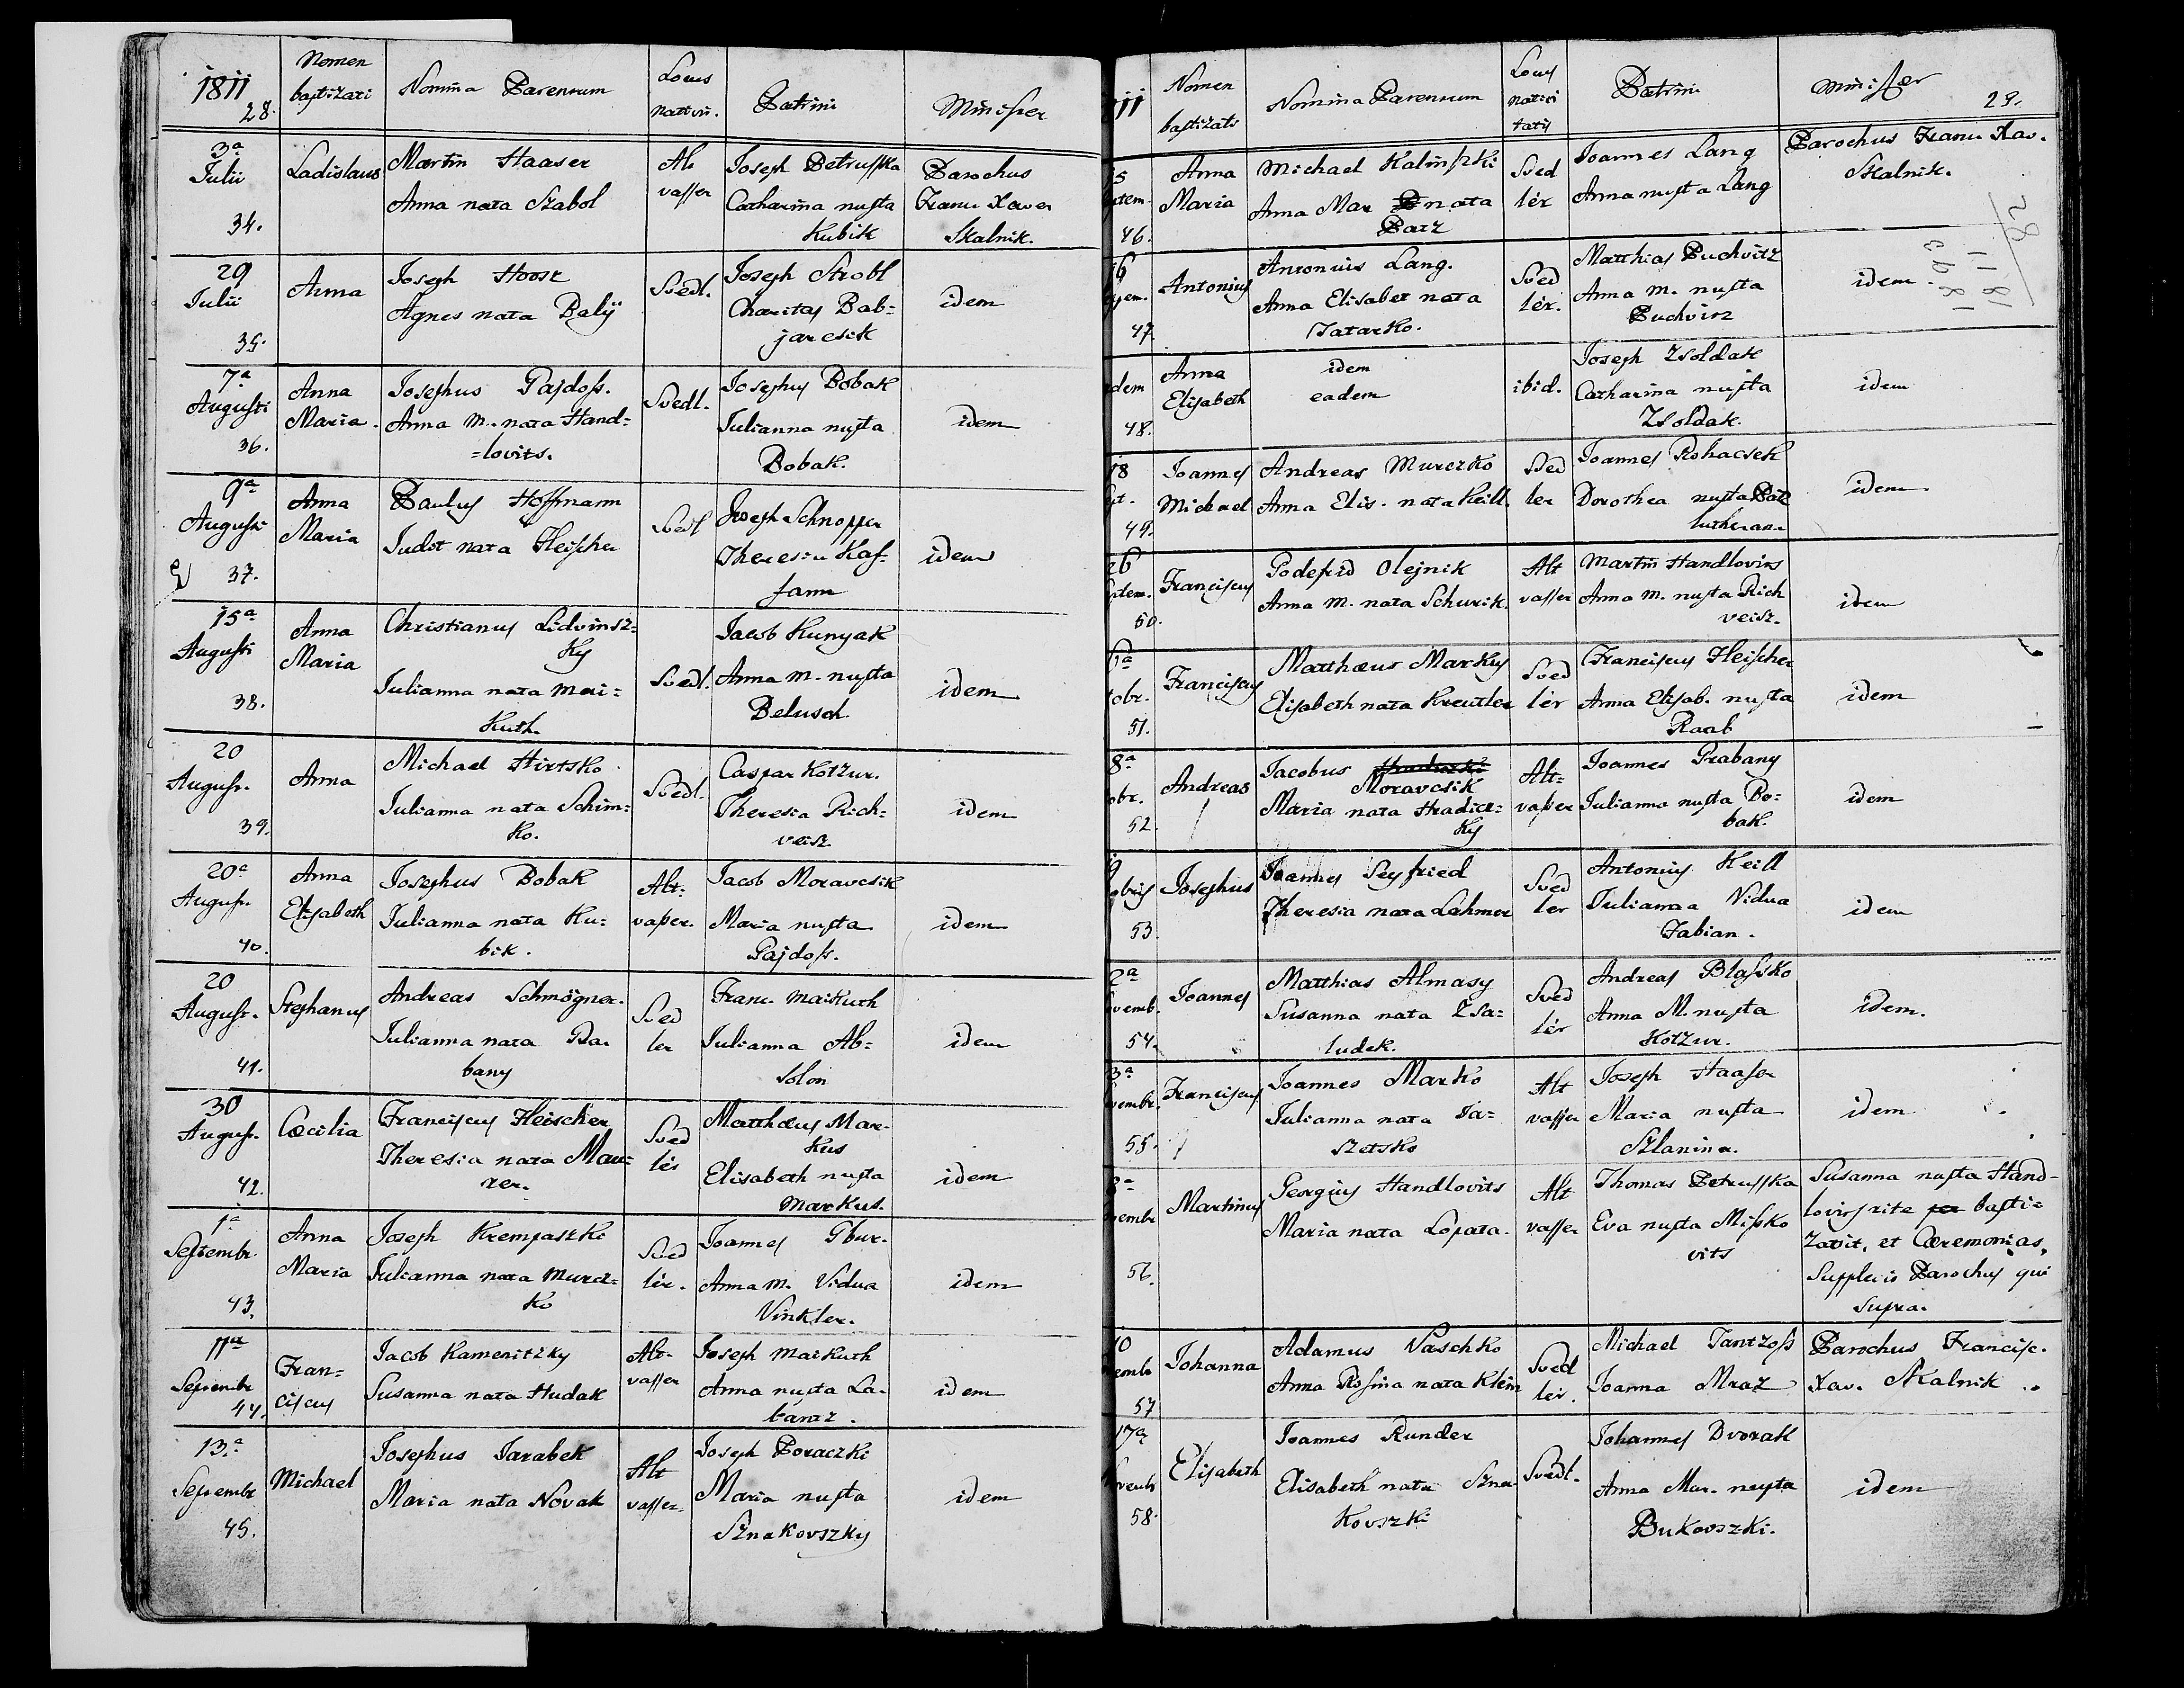 1811
28.
Nomen
baptizati
Nomina Parentum
Locus
nativit.
Patrini
Minister
3a
Julii
34.
Ladislaus
Martin Haaser
Anna nata Szabol
Alt
vasser
Joseph Petrusska
Catharina nupta
Kubik
Parochus
Franc Xaver
Skalnik.
29
Julii
35.
Anna
Joseph Hoost
Agnes nata Balÿ
Svedl.
Joseph Strobl
Charitas Bab=
jarcsik
idem
7a
Augusti
36.
Anna
Maria.
Josephus Gajdoss.
Anna M. nata Hand=
=lovits.
Svedl.
Josephus Bobak
Julianna nupta
Bobak.
idem
9a
Augusti
37.
Anna
Maria
Paulus Hoffmann
Judit nata Fleischer
Svedl
Joseph Schnopper
Theresia Kaf=
fann
idem
15a
Augusti
38.
Anna
Maria
Christianus Ludvinsz=
ky
Julianna nata Mai=
kuth.
Svedl.
Jacob Kunyak
Anna M. nupta
Belusch
idem
20
August.
39.
Anna
Michael Hirtsko
Julianna nata Schim=
ko.
Svedl.
Caspar Kotzur.
Theresia Rich=
veisz.
idem
20a
August.
40.
Anna
Elisabeth
Josephus Bobak
Julianna nata Ku=
bik.
Alt=
vasser.
Jacob Moravcsik
Maria nupta
Gajdoss.
idem
20
August.
41.
Stephanus
Andreas Schmögner.
Julianna nata Gra
bany
Sved
ler
Franc. Maikuth
Julianna Ab=
solon
idem
30
August.
42.
Cæcilia
Franciscus Fleischer
Theresia nata Mau=
rer.
Sved
lér
Matthæus Mar-
kus
Elisabeth nupta
Markus.
idem
1a
Septembr.
43.
Anna
Maria
Joseph Krempaszki
Julianna nata Murcz=
ko
Sved
lér.
Joannes Gbur.
Anna M. Vidua
Vinkler.
idem
11a
Septembr
44.
Fran=
ciscus
Jacob Kamenitzky
Susanna nata Hudak
Alt-
vasser
Joseph Maikuth
Anna nupta La-
bantz.
idem
13.a
Septembr
45.
Michael
Josephus Jarabek
Maria nata Novak
Alt
vasser
Joseph Poraczki
Maria nupta
Sznakovszky
idem
11
Nomen
baptizati
Nomina Parentum
Locus
nativi
tatis
Patrini
Minister
29.
5
ptem.
46.
Anna
Maria
Michael Kalinszki
Anna Mar nata
Patz
Sved
lér
Joannes Lang
Anna nupta Lang
Parochus Franc. Xav.
Skalnik.
28
1811
1863
16
47.
Antonius
Antonius Lang.
Anna Elisabet nata
Tatarko.
Sved
lér.
Matthias Puchvitz
Anna M. nupta
Puchvitz
idem.
idem
48.
Anna
Elisabeth
idem
eadem
ibid.
Joseph Zsoldak
Catharina nupta
Zsoldak.
idem
18
pt.
49.
Joannes
Michael
Andreas Murczko
Anna Elis. nata Keill.
Sved
ler
Joannes Rohacsek
Dorothea nupta Patz
lutheran
idem.
26
ptem.
50.
Franciscus
Godefrid Olejnik
Anna M. nata Schurik.
Alt
vasser
Martin Handlovits
Anna M. nupta Rich
veisz.
idem
tobr.
51.
Franciscus
Matthæus Markus
Elisabeth nata Kreutler
Sved
lér
Franciscus Fleischer
Anna Elisab. nupta
Raab
idem
8a
obr.
52.
Andreas
Jacobus
Moravcsik
Maria nata Hradicz=
ky
Alt=
vasser
Joannes Grabany
Julianna nupta Bo=
bak.
idem
9
obris
53.
Josephus
Joannes Seyfried
Theresia nata Lahmer
Sved
ler
Antonius Keill
Julianna Vidua
Fabian.
idem
2a
vemb.
54.
Joannes
Matthias Almasy
Susanna nata Zsa=
ludek.
Sved
lér
Andreas Blassko
Anna M. nupta
Kotzur.
idem.
3a
vembr.
55.
Franciscus
Joannes Marko
Julianna nata Ja=
szetsko
Alt
vasser
Joseph Haaser
Maria nupta
Szlanina.
idem
8a
vembr
56.
Martinus
Georgius Handlovits
Maria nata Lopata.
Alt
vasser
Thomas Petrusska
Eva nupta Missko
vits
Susanna nupta Hand-
lovits rite bapti=
zavit, et Cæremonias
Supplevit Parochus qui
supra.
10
embr
57
Johanna
Adamus Vaschko
Anna Rosina nata Klein
Sved
lér.
Michael Tantzoss
Joanna Mraz
Parochus Francisc.
Xav. Skalnik
17a
vembr
58.
Elisabeth
Joannes Runder
Elisabeth nata Szna
kovszki
Svedl.
Johannes Dvorak
Anna Mar. nupta
Bukovszki.
idem